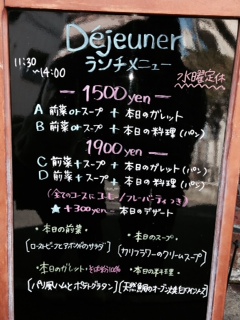 Déjeuner
11:30
~14:00
ランチメニュー
水曜定休
1500yen
A 前菜orスープ + 本日のガレット
B 前菜orスープ + 本日の料理(パン)
1900yen
C 前菜+スープ + 本日のガレット(パン)
D 前菜+スープ + 本日の料理(パン)
(全てのコースにコーヒー/フレーバーティつき)
★ +300yen 本日のデザート
・本日の前菜・
[ローストビーフとアボカドのサラダ]
・本日のスープ・
[カリフラワーのクリームスープ]
・本日のガレット・そば粉100%
[パリ風ハムとポテトグラタン]
・本日のお料理・